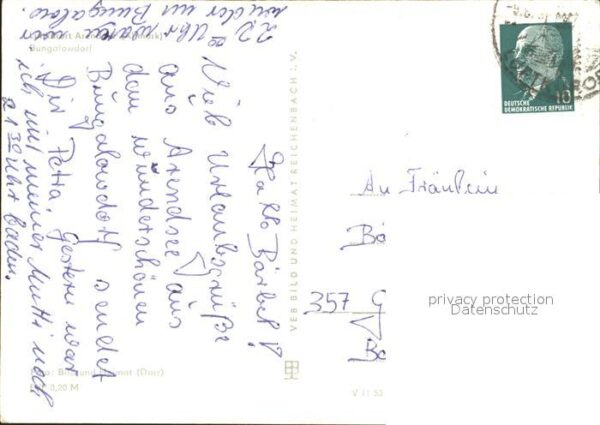 Hallo Bärbel!
Viele Urlaubsgrüße
aus Arendsee aus
dem wunderschönen
Bungalowdorf sendet
Dir Petra. Gestern war
ich mit meiner Mutti noch
21 30 Uhr baden.
22 00 Uhr waren wir
wieder im Bungalow.
Bungalowdorf
Bild und Heimat (Darr)
0,20 M
VEB BILD UND HEIMAT REICHENBACH i. V.
V 11 50
DEUTSCHE
DEMOKRATISCHE REPUBLIK
10
An Fräulein
357 G
privacy protection
Datenschutz